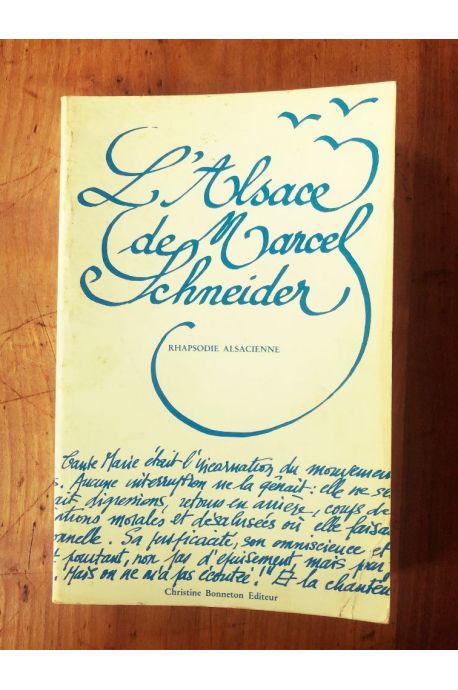 L'Alsace
de Marcel
Schneider
RHAPSODIE ALSACIENNE
Tante Marie était l'incarnation du mouvemen
s. Aucune interruption ne la gênait : elle ne se
ait digressions, retours en arrière, coups de
ations morales et désabusées où elle faisai
onnelle. Sa perspicacité, son omniscience et
t pourtant, non pas d'épuisement, mais par
! Mais on ne m'a pas écoutée !" Et la chanteu
Christine Bonneton Editeur